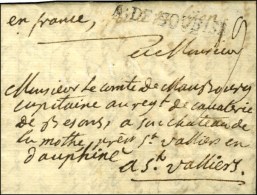 en france,
A. DE
A Monsieur
Monsieur Le Comte de
Capitaine au regt de Cavalerie
de Besons, a son chateau de
la mothe, près St valliers en
dauphiné
a St valliers.